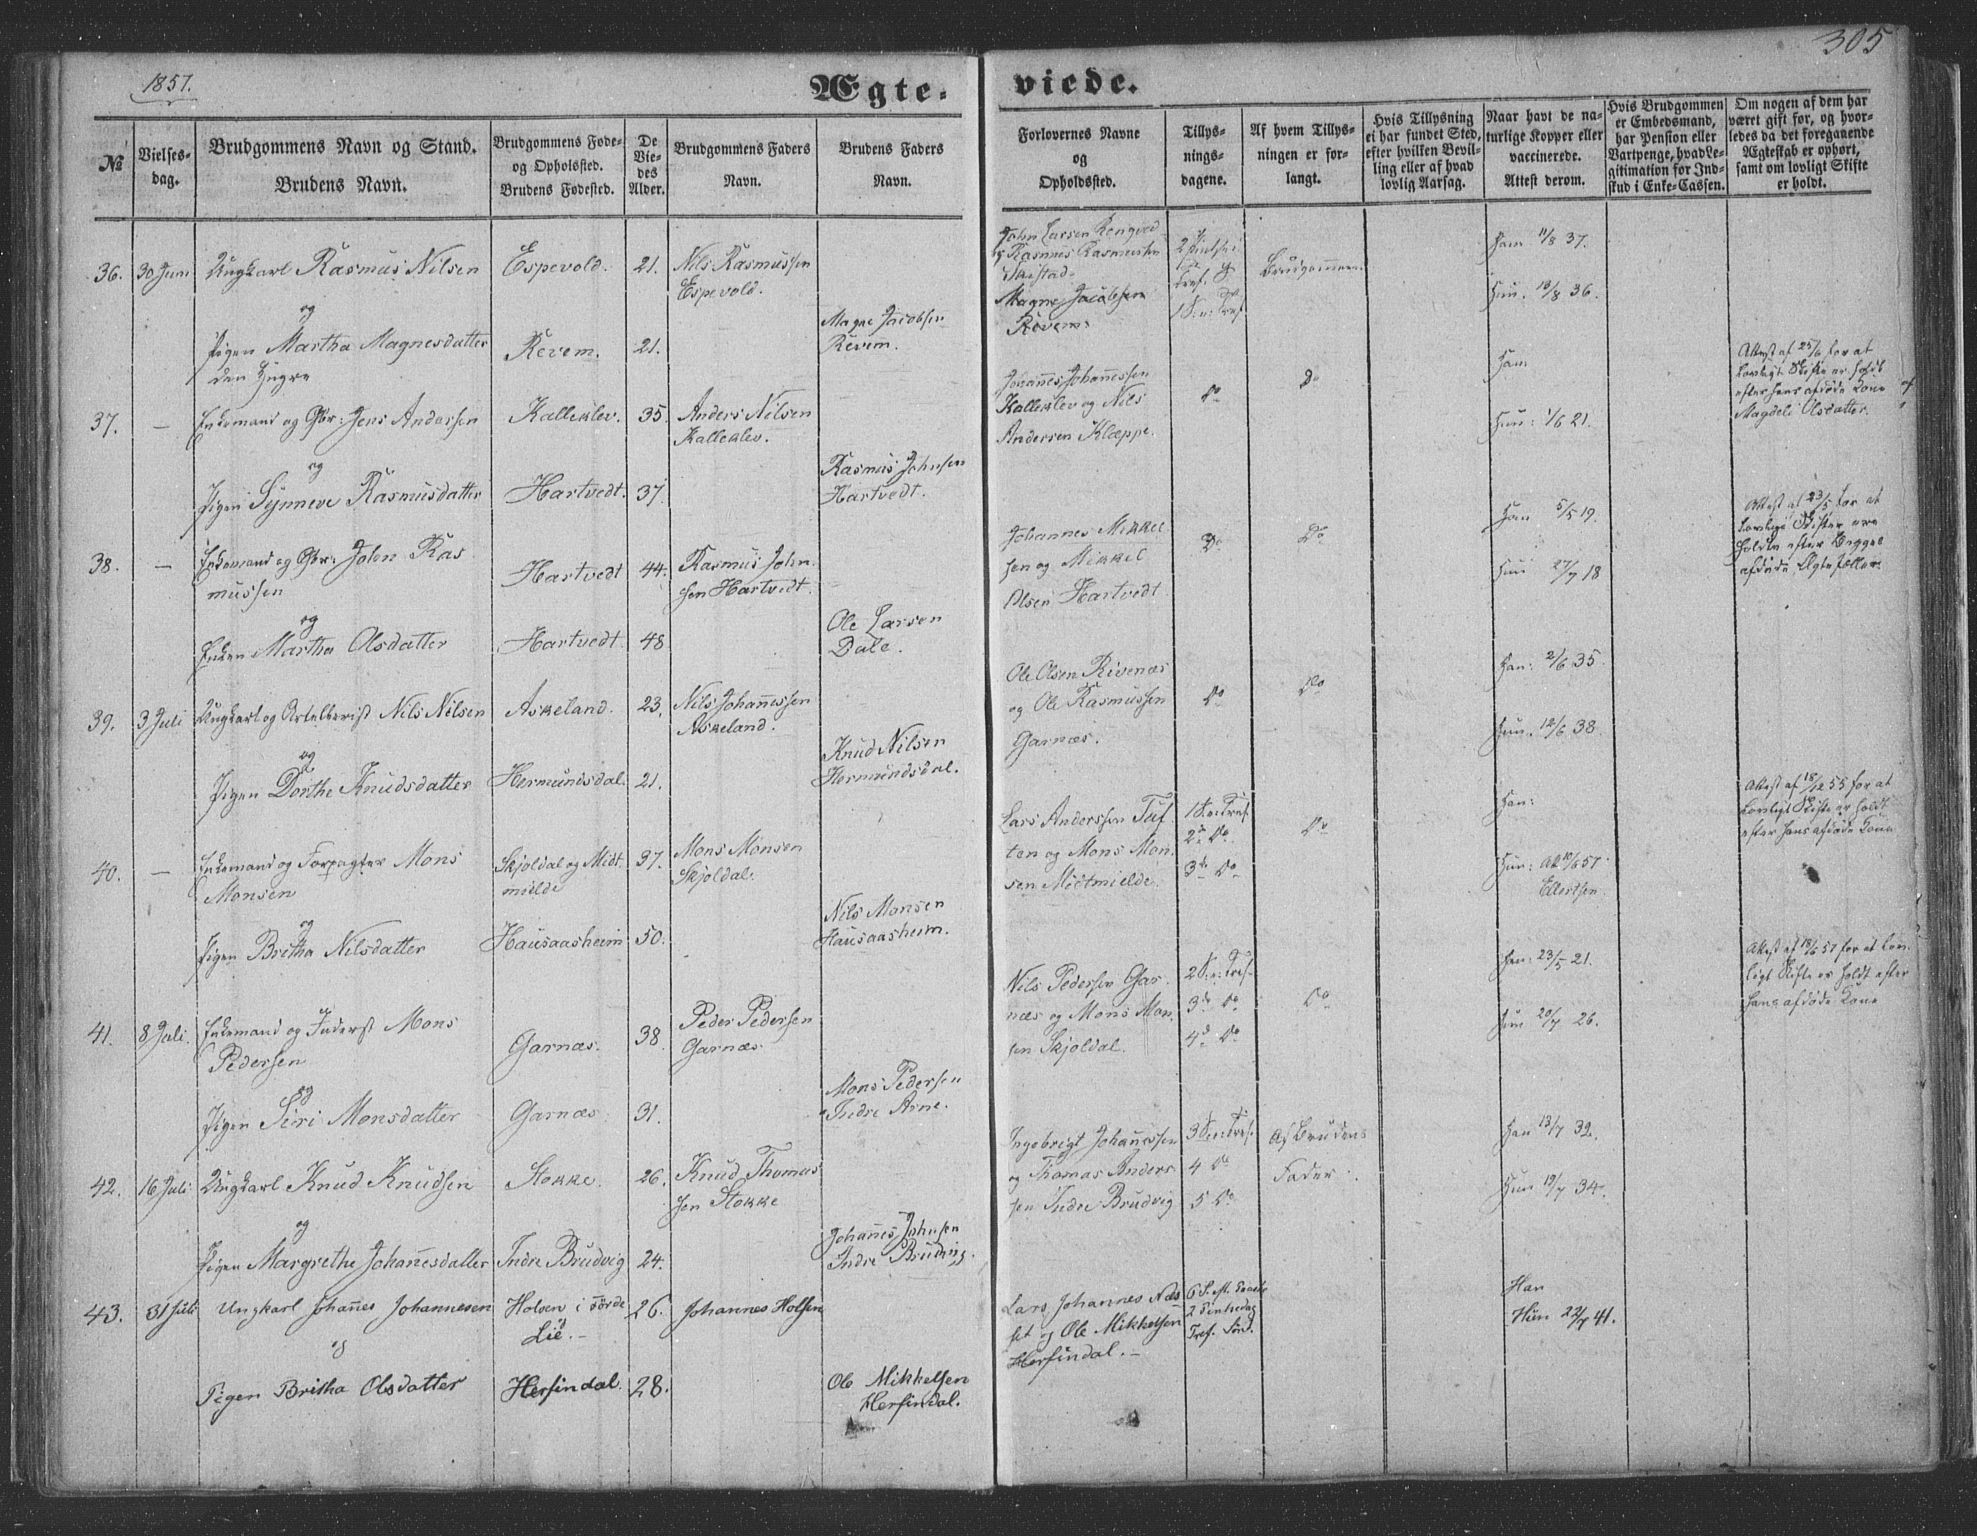 1857.
Ægte- viede.
305
№
Vielses-
dag.
Brudgommens Navn og Stand.
Brudens Navn.
Brudgommens Føde-
og Opholdssted.
Brudens Fødested.
De
Vie-
des
Alder.
Brudgommens Faders
Navn.
Brudens Faders
Navn.
Forlovernes Navne
og
Opholdssted.
Tillys-
nings-
dagene.
Af hvem Tillys-
ningen er for-
langt.
Hvis Tillysning
ei har fundet Sted,
efter hvilken Bevil-
ling eller af hvad
lovlig Aarsag.
Naar havt de na-
turlige Kopper eller
vaccinerede.
Attest derom.
Hvis Brudgommen
er Embedsmand,
har Pension eller
Vartpenge, hvad Le-
gitimation for Ind-
skud i Enke-Cassen.
Om nogen af dem har
været gift før, og hvor-
ledes da det foregaaende
Ægteskab er ophørt,
samt om lovligt Skifte
er holdt.
36. 30 Juni Ungkarl Rasmus Nilsen Espevold. 21. Nils Rasmussen
Espevold.
og
Pigen Martha Magnesdatter
den Yngre
Revem. 21.
Magne Jacobsen
Revem.
John Larsen
og Rasmus Rasmussen
Magne Jacobsen
Revem.
Brudgommen
Ham 11/8 37.
Hun. 18/8 36.
37. – Enkemand og Gbr: Jens Andersen Kalleklev. 35. Anders Nilsen
Kalleklev.
og
Pigen Synneve Rasmusdatter Hartvedt. 37.
Rasmus Johnsen
Hartvedt.
Johannes Johannessen
Kalleklev og Nils
Andersen Klæppe.
Do
Do
Ham
Hun: 1/6 21.
Attest af 25/6 for at
lovligt Skifte er holdt
efter hans afdøde Kone
Magdeli Olsdatter.
38. – Enkemand og Gbr: John Ras
mussen
Hartvedt 44. Rasmus John
sen Hartvedt.
og
Enken Martha Olsdatter Hartvedt 48
Ole Larsen
Dale.
Johannes Mikkel
sen og Mikkel
Olsen Hartvedt
Do
Do
Ham 5/5 19.
Hun 27/7 18
Attest af 23/5 for at
lovlige Skifter ere
holdte efter Begges
afdøde Ægtefæller.
39. 3 Juli Ungkarl og Artellerist Nils Nilsen Askeland. 23. Nils Johannessen
Askeland.
og
Pigen Dorthe Knudsdatter Hermundsdal. 21.
Knud Nilsen
Hermundsdal.
Ole Olsen Rivenæs
og Ole Rasmussen
Garnæs.
Do
Do
Han: 2/6 35.
Hun. 12/6 38.
40. – Enkemand og Forpagter Mons
Monsen
Skjoldal og Midt
milde
37. Mons Monsen
Skjoldal.
og
Pigen Britha Nilsdatter Hausaasheim 50.
Nils Monsen
Hausaasheim.
Lars Anderssen Tuf
ten og Mons Mon
sen Midtmielde.
1 S. e: Tref.
2d Do
3de Do
Do
Han:
Hun: Att 10/6 57
Ellertsen.
Attest af 18/12 55 for at
lovligt Skifte er holdt
efter hans afdøde Kone
41. 8 Juli. Enkemand og Inderst Mons
Pedersen
Garnæs. 38. Peder Pedersen
Garnæs.
og
Pigen Siri Monsdatter Garnæs 31.
Mons Pedersen
Indre Arne.
Nils Pedersen Gar
næs og Mons Mon
sen Skjoldal.
2 S: e: Tref.
3de Do
4d Do
Do
Han: 23/5 21.
Hun 20/7 26.
Attest af 18/6 57 for at lov
ligt Skifte er holdt efter
hans afdøde Kone
42. 16 Juli Ungkarl Knud Knudsen Stokke. 26. Knud Thomas
sen Stokke
og
Pigen Margrethe Johannesdatter Indre Brudvig 24.
Johannes Johnsen
Indre Brudvig.
Ingebrigt Johannessen
og Thomas Anders
sen Indre Brudvig
3 S. e: Tref.
4 Do
5 Do
Af Brudens
Fader.
Han 13/7 32.
Hun 19/7 34.
43. 31 Juli Ungkarl Johannes Johannesen Holsen i Förde
Lie. –
26. Johannes Holsen
og
Pigen Britha Olsdatter Herfindal. 28.
Ole Mikkelsen
Herfindal.
Lars Johannes Næs
set og Ole Mikkelsen
Herfindal. –
6 S. eft. Paaske
2 Pintsedag
Tref. Sönd.
Han
Hun 22/7 41.